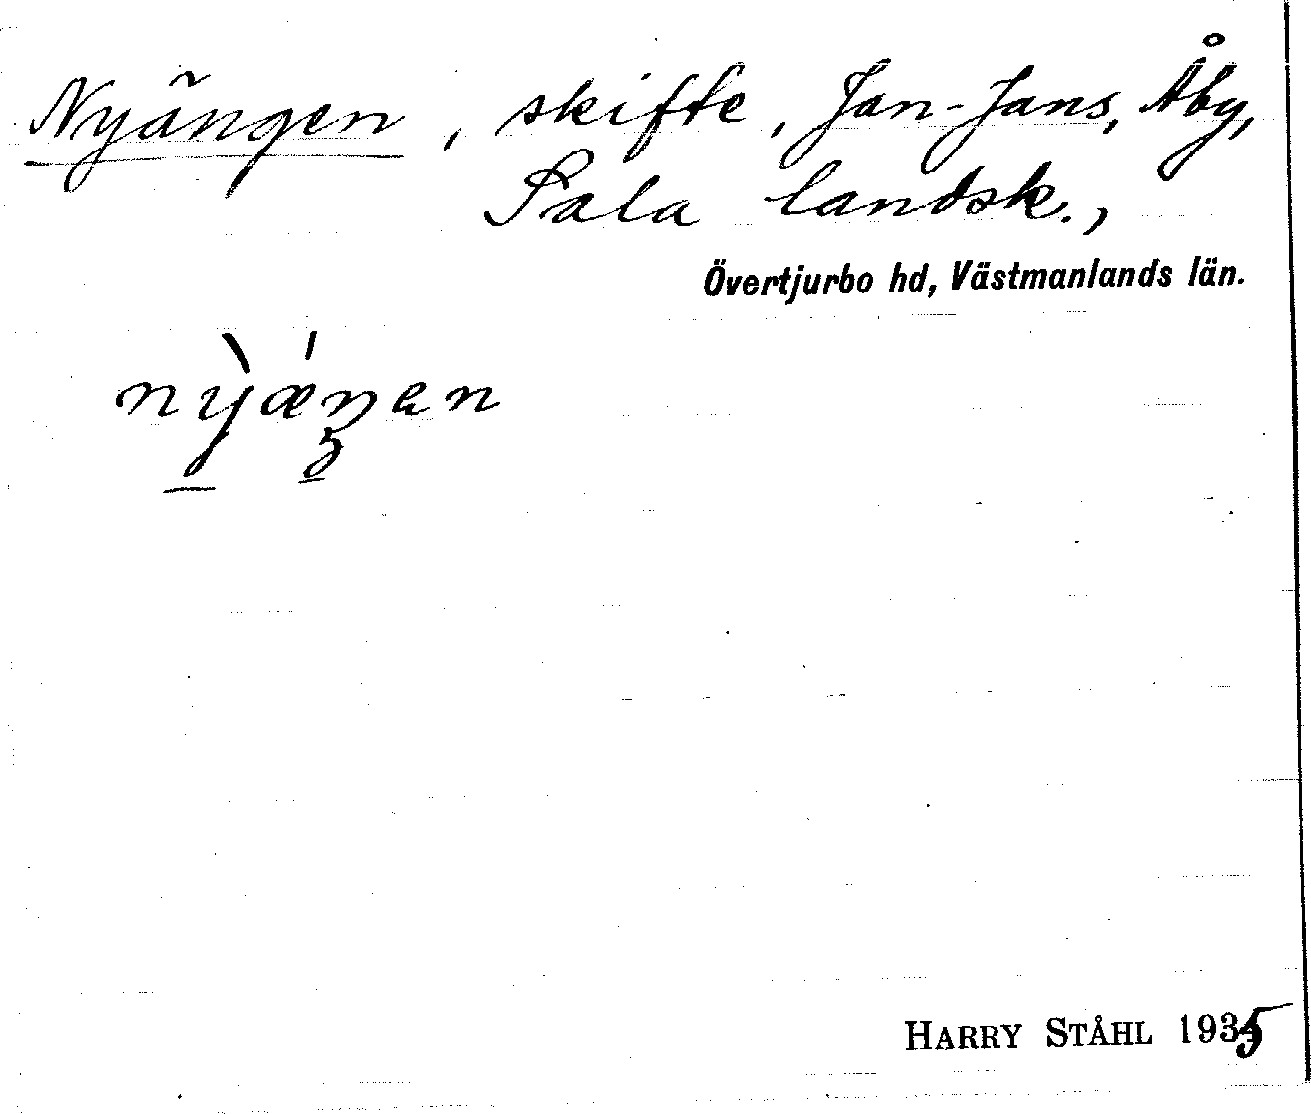 Nyängen, skifte, Jan-Jans, Åby,
Sala landsk.,
Övertjurbo hd, Västmanlands län.
nỳǽŋen
HARRY STÅHL 1935